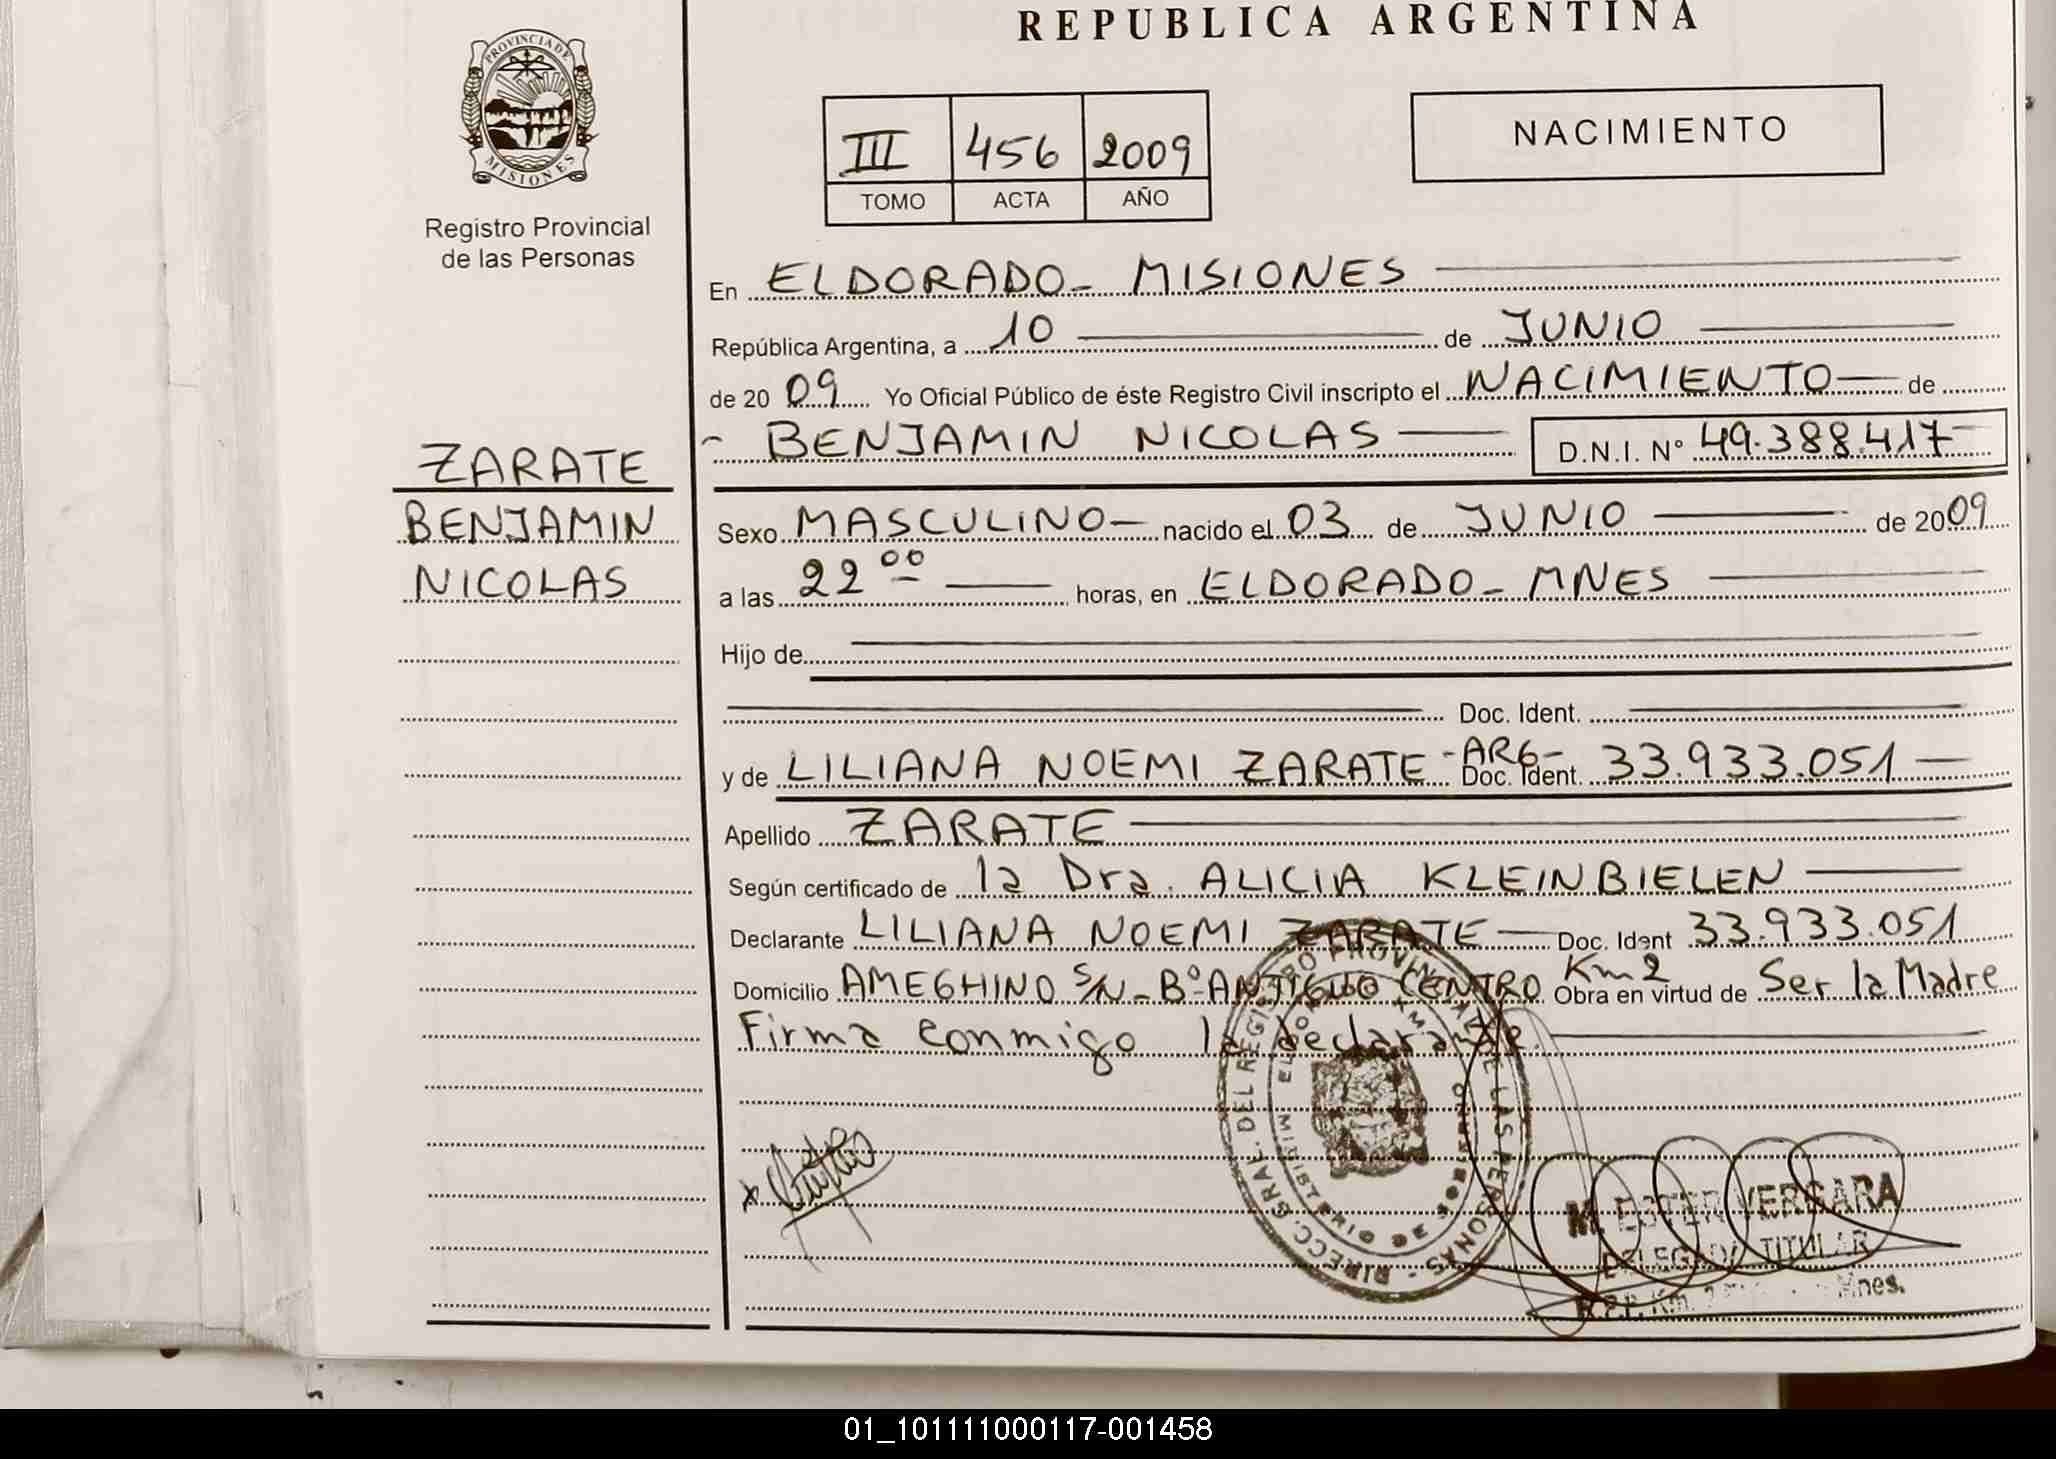 REPUBLICA ARGENTINA
PROVINCIA DE
MISIONES
Registro Provincial
de las Personas
III 456 2009
TOMO ACTA AÑO
NACIMIENTO
En ELDORADO - MISIONES
República Argentina, a 10 de JUNIO
de 2009 Yo Oficial Público de éste Registro Civil inscripto el NACIMIENTO de
BENJAMIN NICOLAS D.N.I. N° 49.388.417
ZARATE
BENJAMIN
NICOLAS
Sexo MASCULINO nacido el 03 de JUNIO de 2009
a las 22 00 horas, en ELDORADO - MNES
Hijo de
Doc. Ident.
y de LILIANA NOEMI ZARATE - ARG - Doc. Ident. 33.933.051
Apellido ZARATE
Según certificado de la Dra. ALICIA KLEINBIELEN
Declarante LILIANA NOEMI ZARATE Doc. Ident 33.933.051
Domicilio AMEGHINO S/N - B° ANTIGUO CENTRO Km 2 Obra en virtud de Ser la Madre
Firma conmigo la declarante.
DIRECC. GRAL. DEL REGISTRO PROVINCIAL DE LAS PERSONAS
MINISTERIO DE GOBIERNO
M. ESTER VERGARA
DELEGADA TITULAR
R.P.P. Km. 2 Mnes.
01_101111000117-001458